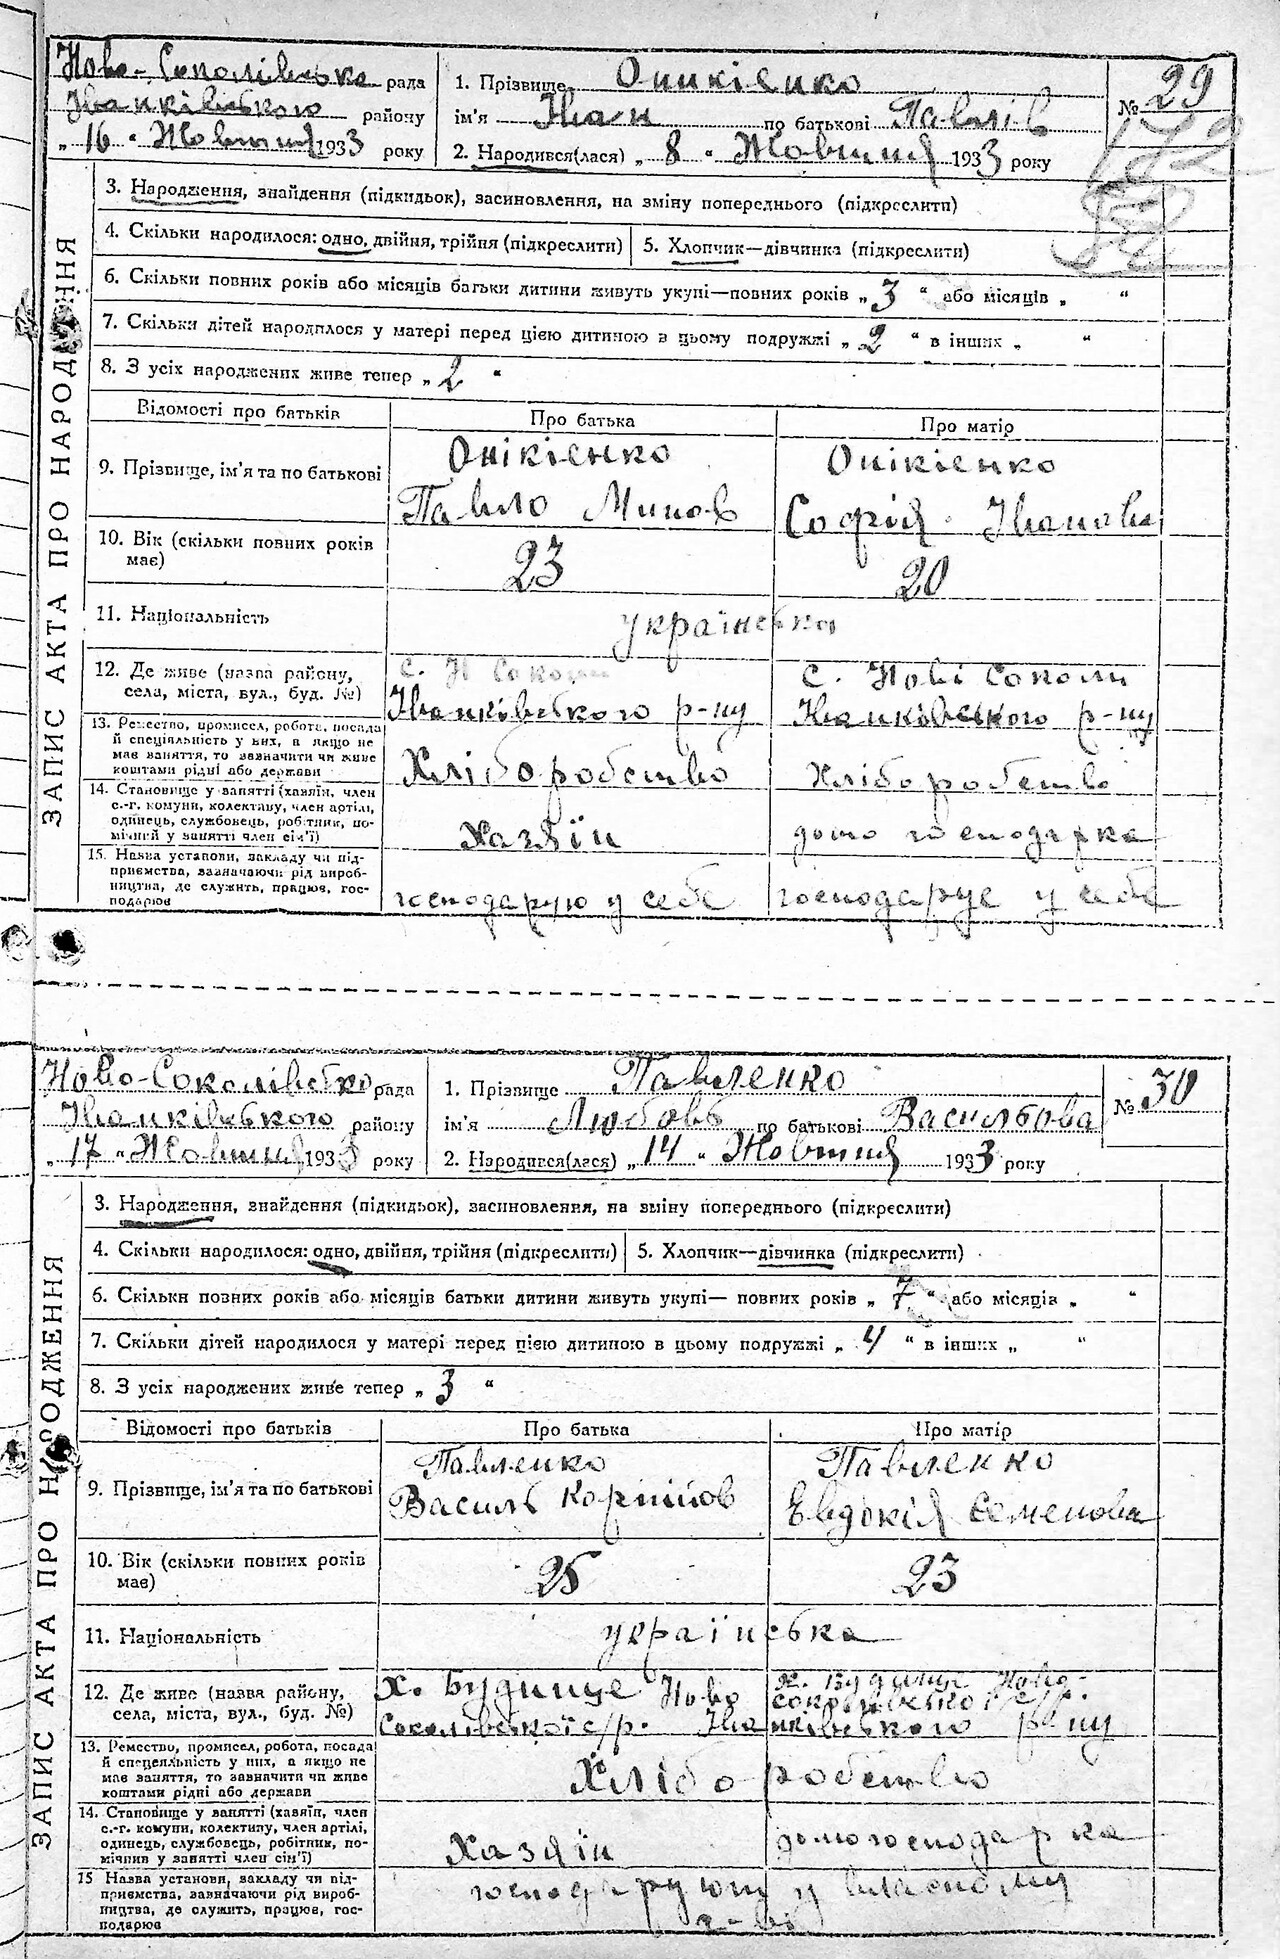 Ново-Соколівська рада
Іванківського району
„ 16 “ Жовтня 1933 року
1. Прізвище Оникієнко
ім'я Іван по батькові Павлів
2. Народився(лася) „ 8 “ Жовтня 1933 року
№ 29
ЗАПИС АКТА ПРО НАРОДЖЕННЯ
3. Народження, знайдення (підкидьок), засиновлення, на зміну попереднього (підкреслити)
4. Скільки народилося: одно, двійня, трійня (підкреслити) 5. Хлопчик—дівчинка (підкреслити)
6. Скільки повних років або місяців батьки дитини живуть укупі—повних років „ 3 “ або місяців „ “
7. Скільки дітей народилося у матері перед цією дитиною в цьому подружжі „ 2 “ в інших „ “
8. З усіх народжених живе тепер „ 2 “
Відомості про батьків Про батька Про матір
9. Прізвище, ім'я та по батькові
Онікієнко
Павло Минов
Онікієнко
Софія Іванова
10. Вік (скільки повних років
має)
23
20
11. Національність українська
12. Де живе (назва району,
села, міста, вул., буд. №)
с. Н Соколи
Іванківського р-ну
с. Нові Соколи
Іванківського р-ну
13. Ремество, промисел, робота, посада
й спеціяльність у них, а якщо не
має заняття, то зазначити чи живе
коштами рідні або держави
Хліборобство
Хліборобство
14. Становище у занятті (хазяїн, член
с.-г. комуни, колективу, член артілі,
одинець, службовець, робітник, по-
мічний у занятті член сім'ї)
Хазяїн
домогосподарка
15. Назва установи, закладу чи під-
приємства, зазначаючи рід вироб-
ництва, де служить, працює, гос-
подарює
господарую у себе
господарує у себе
Ново-Соколівська рада
Іванківського району
„ 17 “ Жовтня 1933 року
1. Прізвище Павленко
ім'я Любовь по батькові Васильова
2. Народився(лася) „ 14 “ Жовтня 1933 року
№ 30
ЗАПИС АКТА ПРО НАРОДЖЕННЯ
3. Народження, знайдення (підкидьок), засиновлення, на зміну попереднього (підкреслити)
4. Скільки народилося: одно, двійня, трійня (підкреслити) 5. Хлопчик—дівчинка (підкреслити)
6. Скільки повних років або місяців батьки дитини живуть укупі— повних років „ 7 “ або місяців „ “
7. Скільки дітей народилося у матері перед цією дитиною в цьому подружжі „ 4 “ в інших „ “
8. З усіх народжених живе тепер „ 3 “
Відомості про батьків Про батька Про матір
9. Прізвище, ім'я та по батькові
Павленко
Василь Корнійов
Павленко
Евдокія Семенова
10. Вік (скільки повних років
має)
25
23
11. Національність українська
12. Де живе (назва району,
села, міста, вул., буд. №)
х. Будище Ново
Соколівської с/р. Іванківського р-ну
х. Будище Ново-
соколівської с/р.
13. Ремество, промисел, робота, посада
й спецеяльність у них, а якщо не
має заняття, то зазначити чи живе
коштами рідні або держави
Хліборобство
14. Становище у занятті (хазяїн, член
с.-г. комуни, колективу, член артілі,
одинець, службовець, робітник, по-
мічник у занятті член сім'ї)
Хазяїн
домогосподарка
15 Назва установи, закладу чи під-
приємства, зазначаючи рід вироб-
ництва, де служить, працює, гос-
подарює
господарують у власному
г-ві